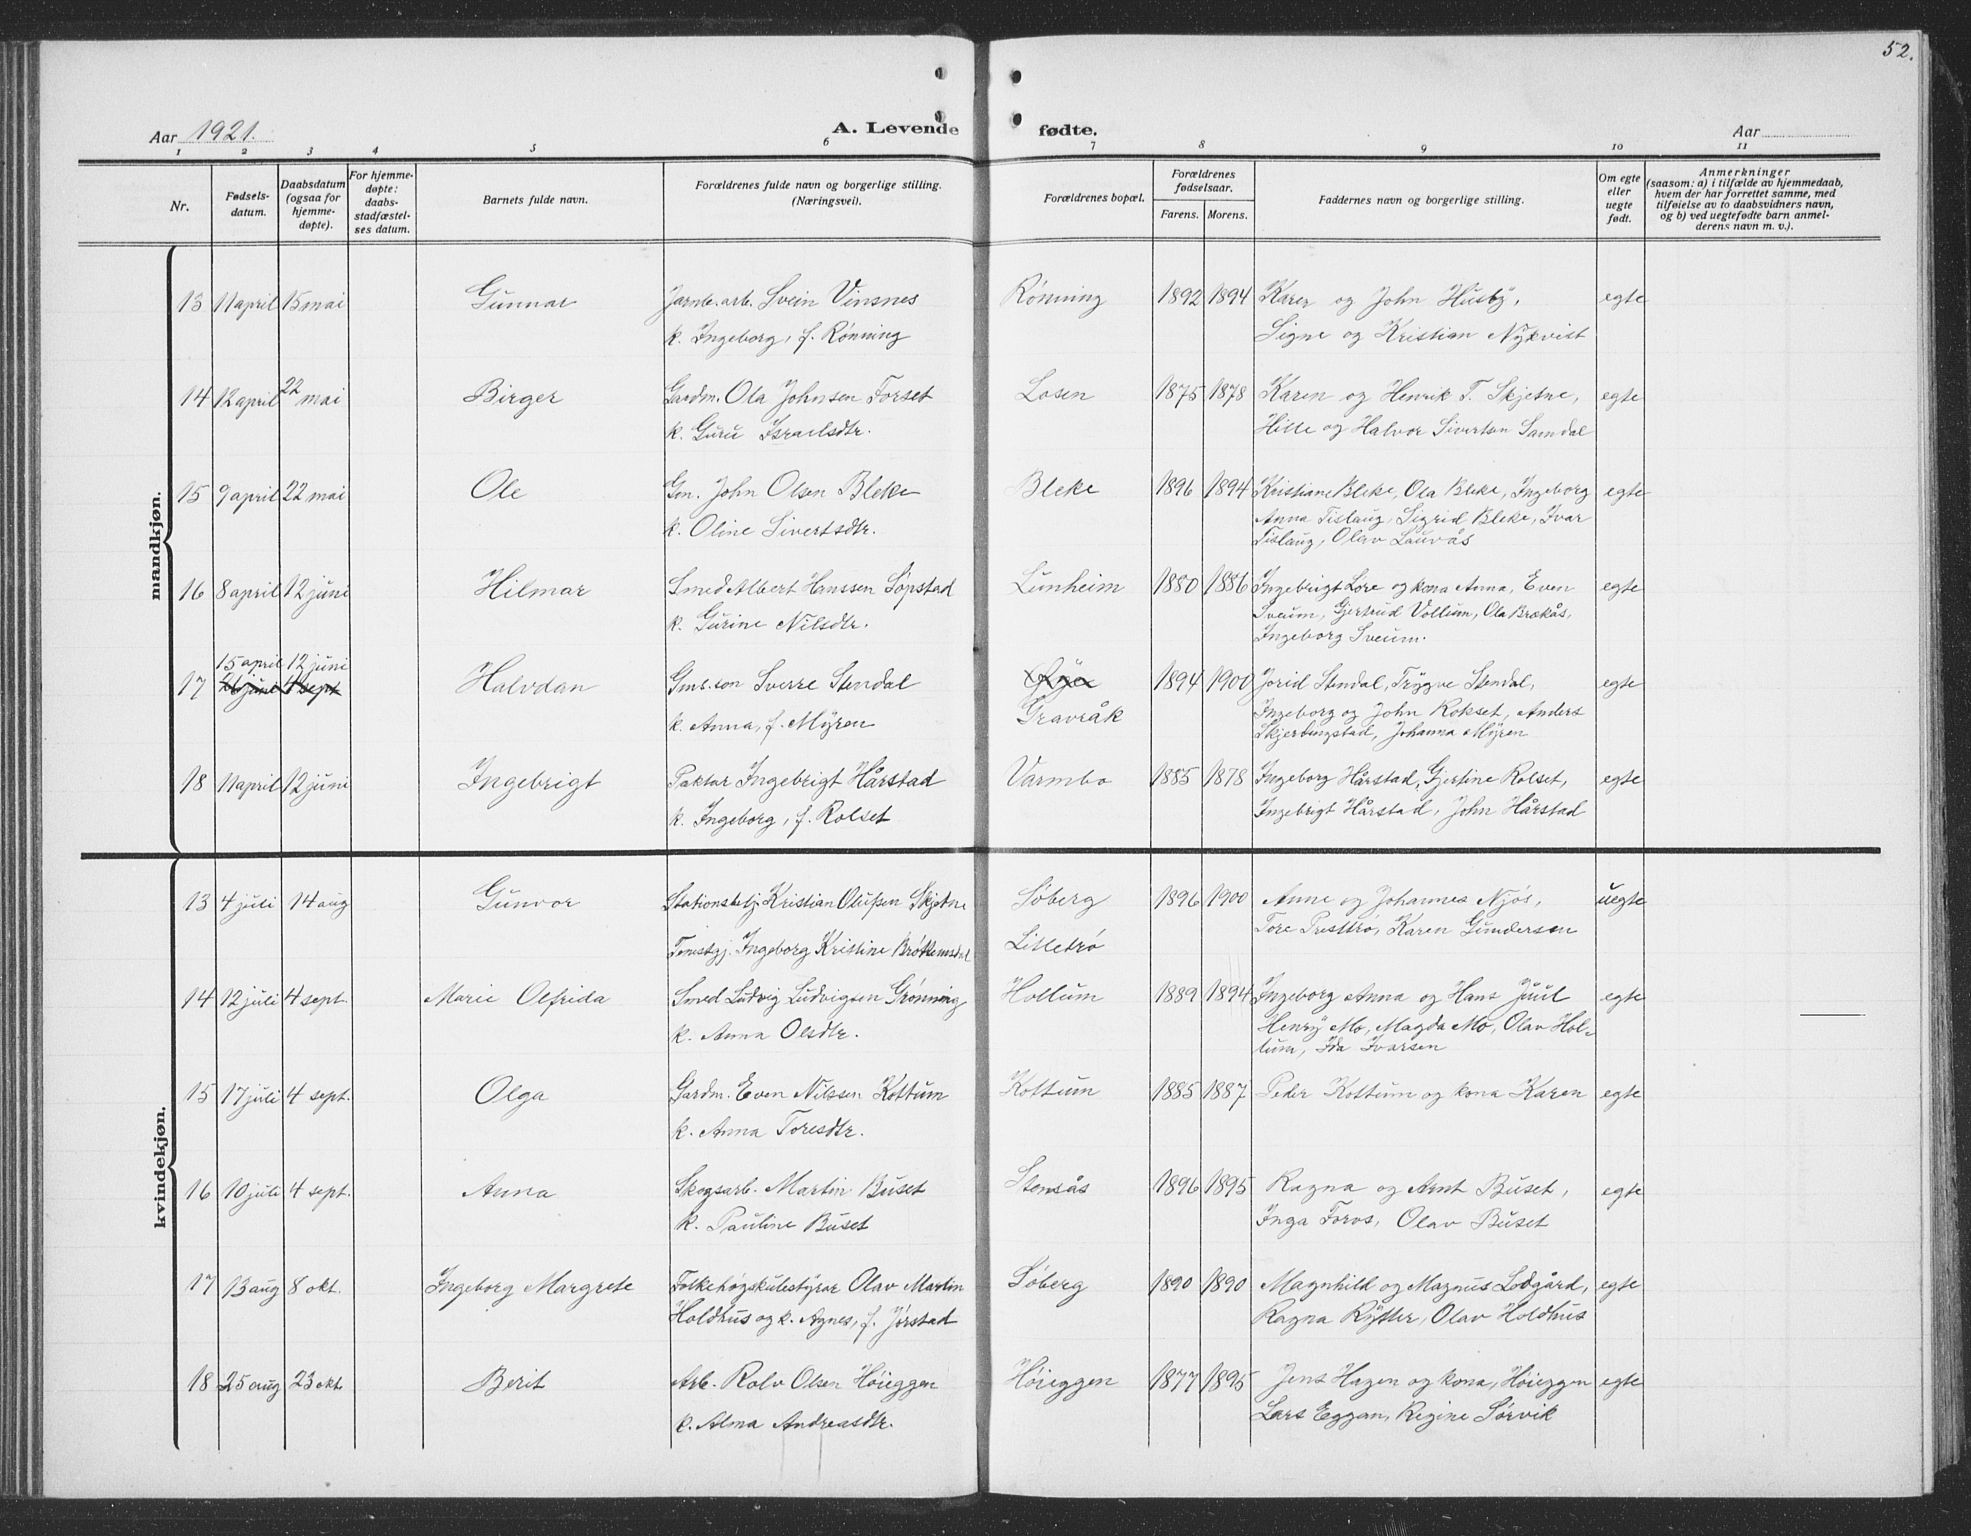 52.
Aar 1921. A. Levende fødte. Aar
1 2 3 4 5 6 7 8 9 10 11
Nr. Fødsels-datum. Daabsdatum (ogsaa for hjemme-døpte). For hjemme-døpte: daabs-stadfæstel-ses datum. Barnets fulde navn. Forældrenes fulde navn og borgerlige stilling. (Næringsvei). Forældrenes bopæl. Forældrenes fødselsaar. Farens. Morens. Faddernes navn og borgerlige stilling. Om egte eller uegte født. Anmerkninger (saasom: a) i tilfælde av hjemmedaab, hvem der har forrettet samme, med tilføielse av to daabsvidners navn, og b) ved uegtefødte barn anmel-derens navn m. v.).
mandkjøn.
13 11 april 15 mai Gunnar Jarnb. arb. Svein Vinsnes Rønning 1892 1894 Karen og John Husby, egte
k. Ingeborg, f. Rønning Signe og Kristian Nykvist
14 12 april 22 mai Birger Gardm. Ola Johnsen Forset Losen 1875 1878 Karen og Henrik T. Skjetne, egte
k. Guru Israelsdtr. Hille og Halvor Sivertsen Samdal
15 9 april 22 mai Ole Gm. John Olsen Bleke Bleke 1896 1894 Kristiane Bleke, Ola Bleke, Ingeborg egte
k. Oline Sivertsdtr. Anna Tislaug, Sigrid Bleke, Ivar
Tislaug, Olav Lauvås
16 8 april 12 juni Hilmar Smed Albert Hanssen Søpstad Lunheim 1880 1886 Ingebrigt Lore og kona Anna, Even egte
k. Gurine Nilsdtr. Sveum, Gjertrud Vollum, Ola Brækås,
Ingeborg Sveum.
15 april 12 juni
17 21 juni 4 sept Halvdan Gms. son Sverre Stendal Øya 1894 1900 Jorid Stendal, Trygve Stendal, egte
k. Anna, f. Myren Gravråk Ingeborg og John Rokset, Anders
Skjerbingstad, Johanna Myren
18 11 april 12 juni Ingebrigt Paktar Ingebrigt Hårstad Varmbo 1885 1878 Ingeborg Hårstad, Gjertine Rolset, egte
k. Ingeborg, f. Rolset Ingebrigt Hårstad, John Hårstad
kvindekjøn.
13 4 juli 14 aug Gunvor Stationsbetj. Kristian Olufsen Skjetne Søberg 1896 1900 Anne og Johannes Njøs, uegte
Ingeborg Kristine Brøttemsdal Litletrø Tore Presttrø, Karen Gundersen
14 12 juli 4 sept. Marie Olfrida Smed Ludvig Ludvigsen Grønning Hollum 1889 1894 Ingeborg Anna og Hans Juul egte
k. Anna Olsdtr. Henry Mo, Magda Mo, Olav Hol-
lum, Ida Ivarsen
15 17 juli 4 sept. Olga Gardm. Even Nilssen Kottum Kottum 1885 1887 Peder Kottum og kona Karen egte
k. Anna Toresdtr.
16 10 juli 4 sept. Anna Skogsarb. Martin Buset Stensås 1896 1895 Ragna og Arnt Buset, egte
k. Pauline Buset Inga Foros, Olav Buset
17 13 aug 8 okt. Ingeborg Margrete Folkehøgskulestyrar Olav Martin Søberg 1890 1890 Magnhild og Magnus Lodgård, egte
Holdhus og k. Agnes, f. Jørstad Ragna Rytter, Olav Holdhus
18 25 aug 23 okt. Berit Arb. Rolv Olsen Høieggen Høieggen 1877 1895 Jens Hagen og kona, Høieggen egte
k. Alma Andreasdtr. Lars Eggan, Regine Sørvik